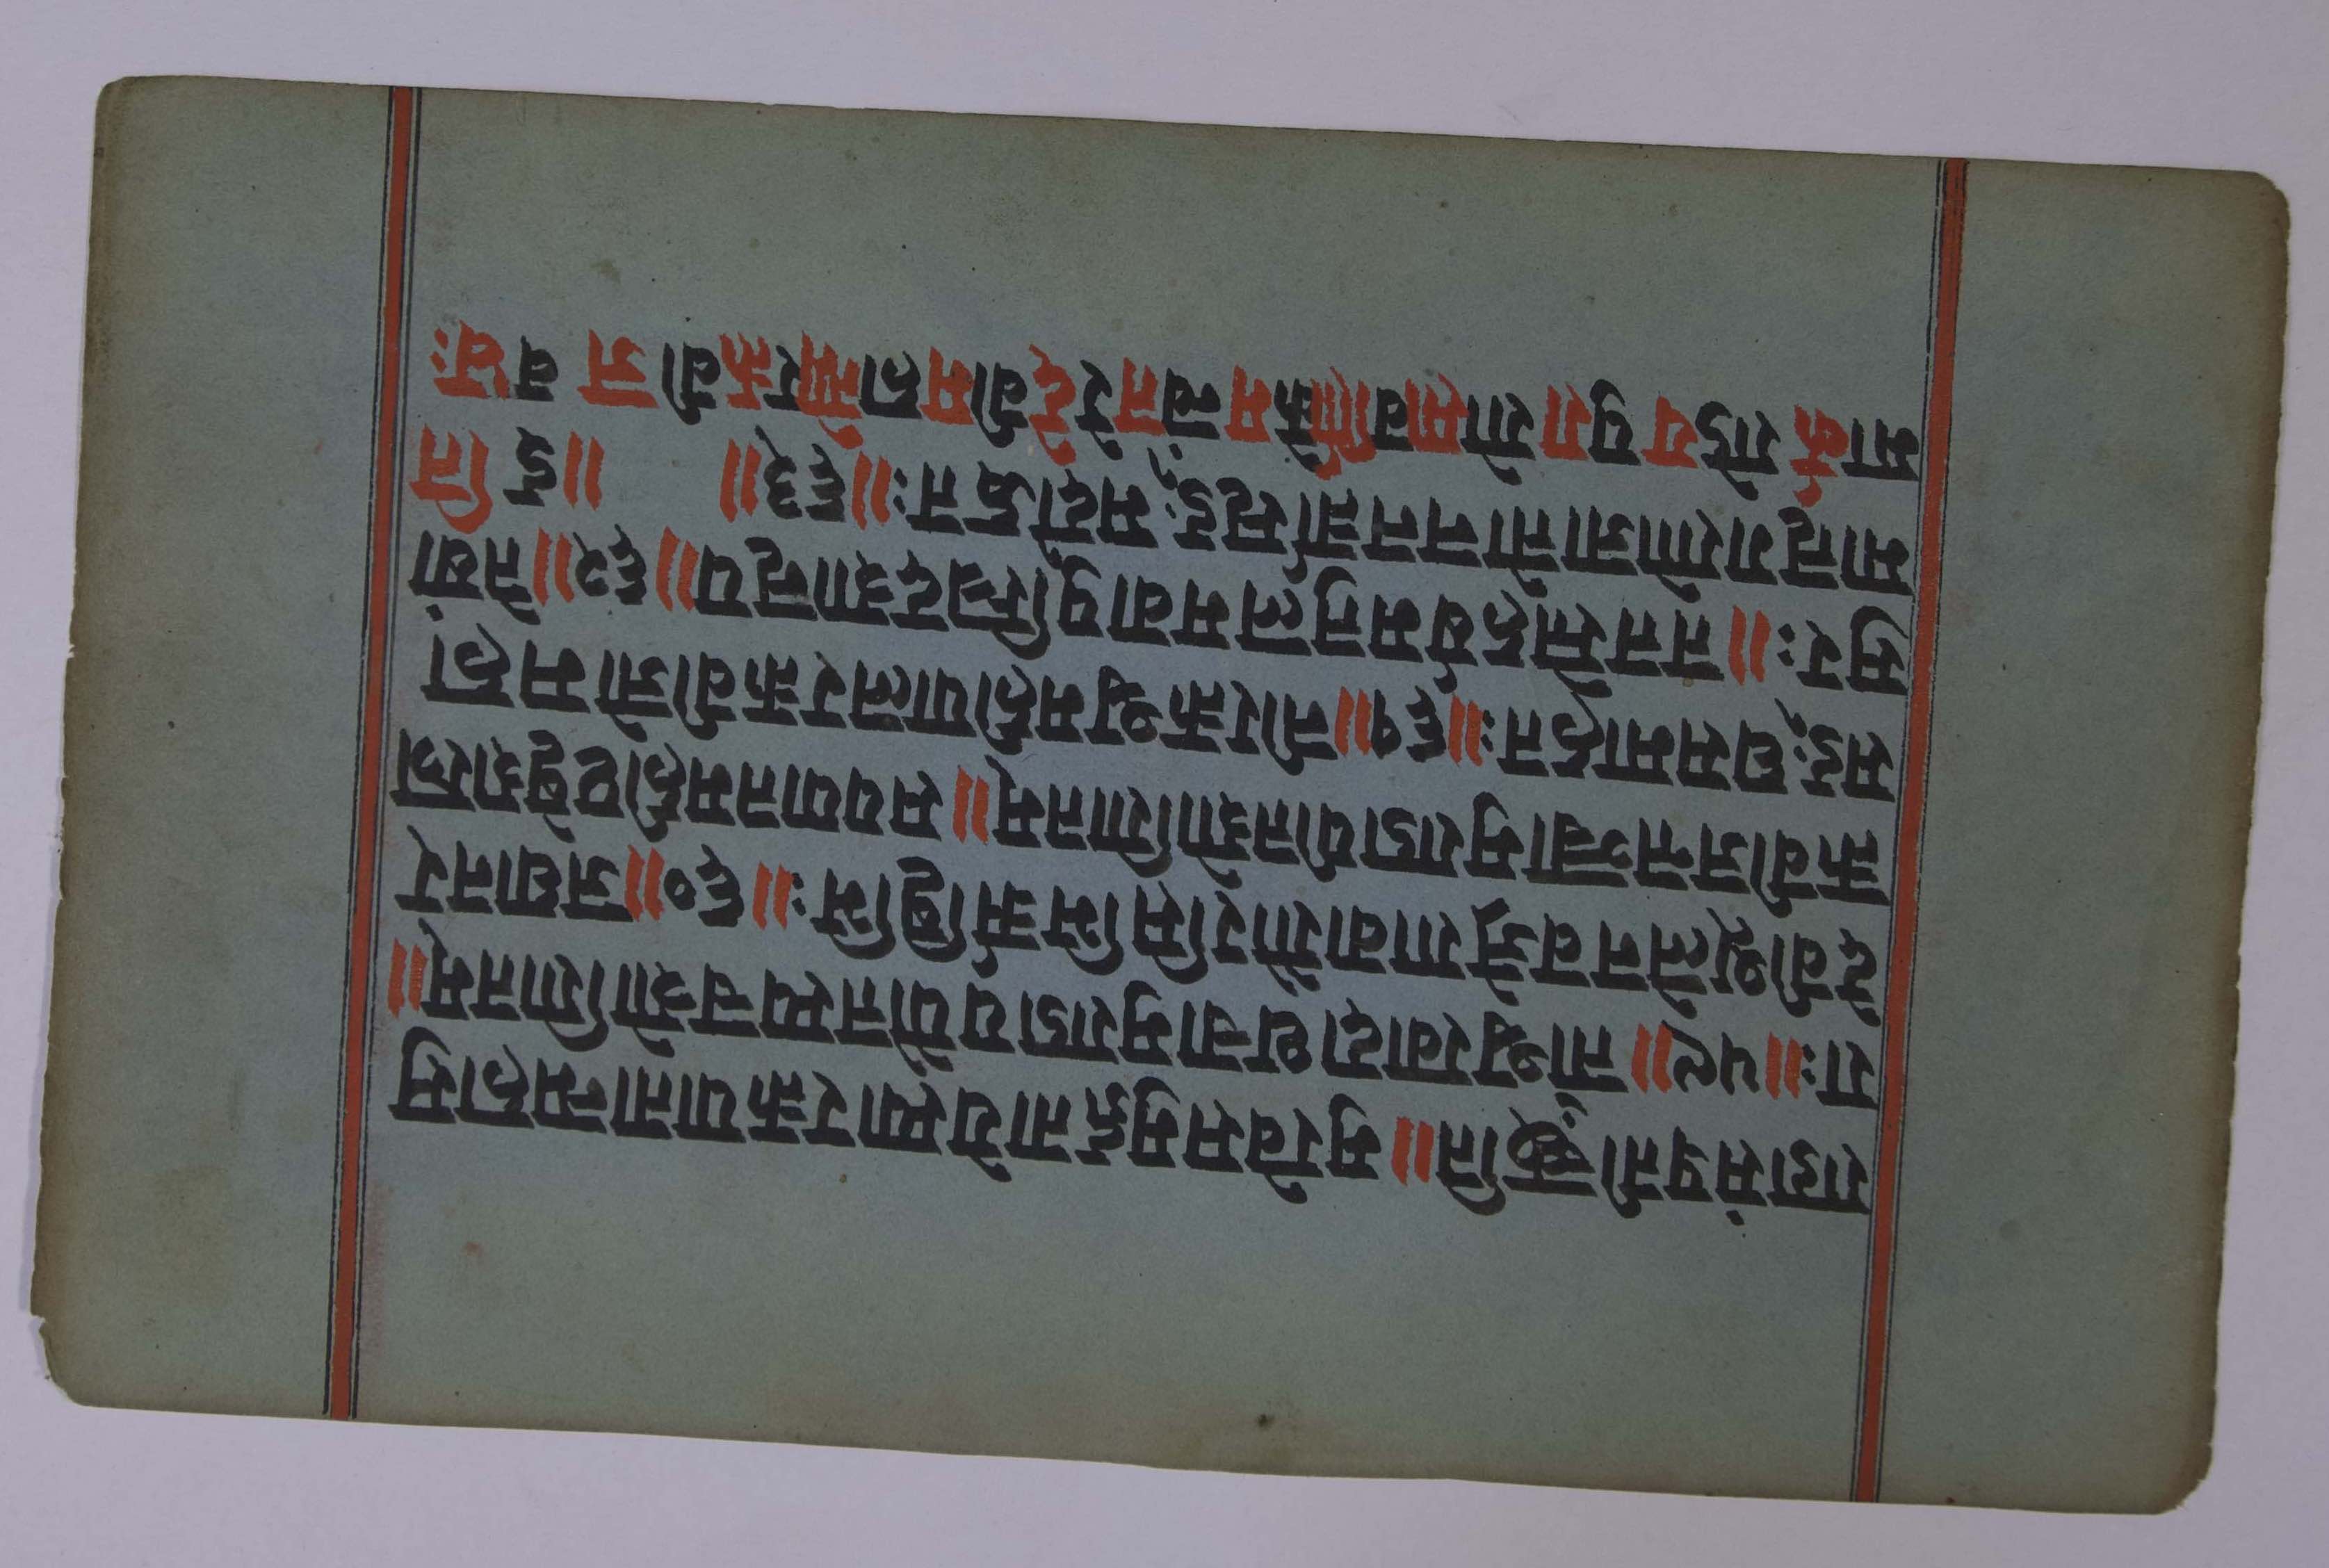 ण्डासंप्रतीच्छति॥मुखेसमुद्गतायेस्यारक्तपातान्महासु
राः॥५९॥ताँश्चखादाथचामुण्डापपौतस्यचशोणितम्॥
देवीशूलेनवज्रेणवाणैरसिभिर्ऋष्टिभिः॥६०॥जघानर
क्तवीजन्तञ्चामुण्डापीतशोणितम्॥सपपातमहीपृष्ठेशस्त्र
सङ्घसमाहतः॥६१॥नीरक्तश्चमहीपालरक्तवीजोमहा
सुरः॥ततस्तेहर्षमतुलमवापुस्त्रिदशानृप॥६२॥तेषां
मातृगणोजातोननर्त्तासृङ्मदोद्धतः॥६३॥ ॥इति
मार्कण्डेयपुराणेसावर्णिकेमन्वंतरेदेवीमहात्म्येरक्तवीजवधः